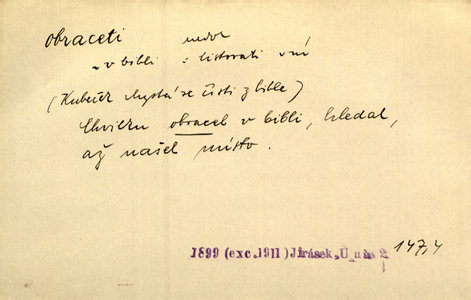 obraceti nedok
~ v bibli : listovati v ní
(Kubeček chystá se čísti z bible)
Chvilku obracel v bibli, hledal,
až našel místo.
1899 (exc. 1911) Jirásek, U nás 2 147,4